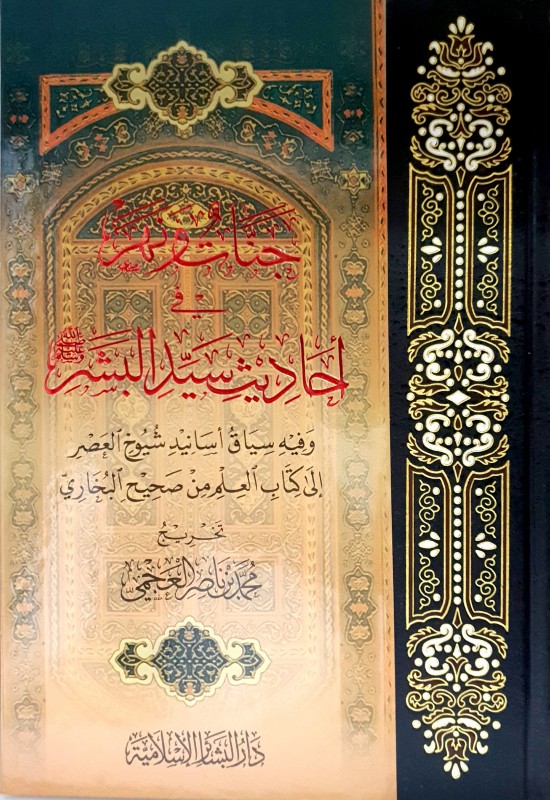 جَنَّاتٌ وَنَهَرٌ
في
أَحَادِيثِ سَيِّدِ البَشَرِ ﷺ
وَفِيْهِ سِيَاقُ أَسَانِيْدِ شُيُوخِ العَصْرِ
إِلَى كِتَابِ العِلْمِ مِنْ صَحِيْحِ البُخَارِيِّ
تَخْرِيجُ
مُحَمَّد بْن نَاصِر العَجْمِيّ
دَارُ البَشَائِرِ الإِسْلَامِيَّة